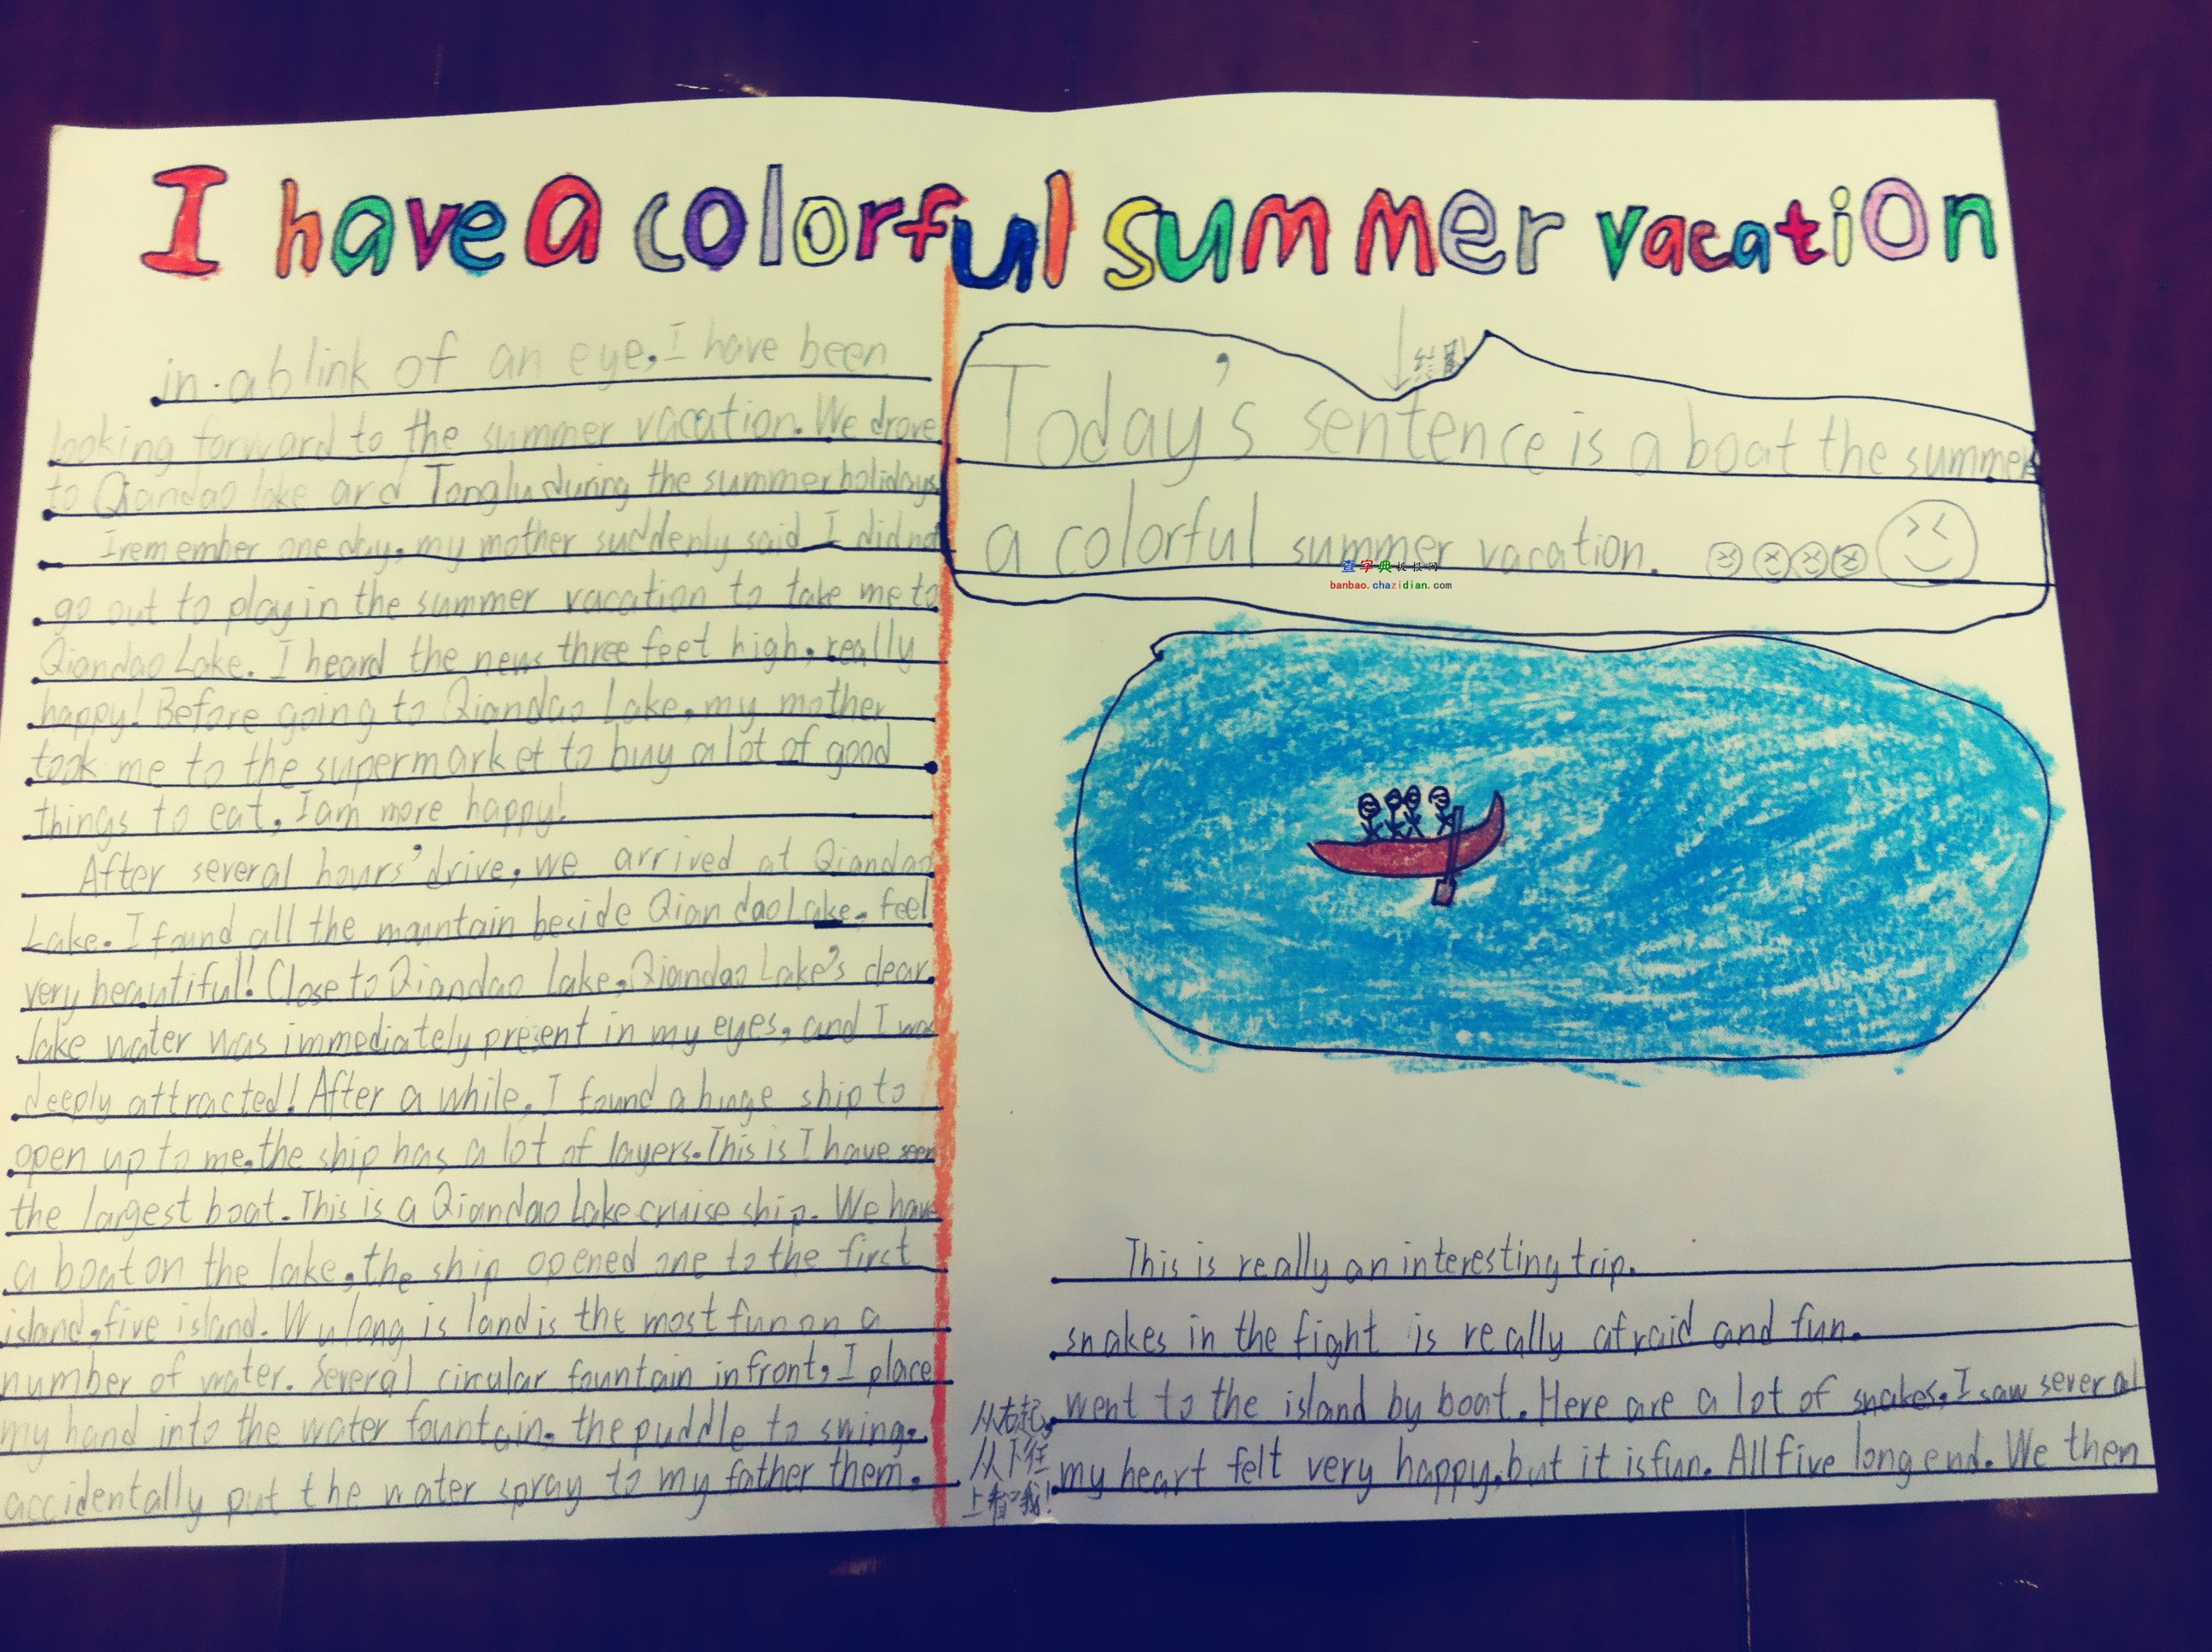 I have a colorful summer vacation
in a blink of an eye, I have been
looking forward to the summer vacation. We drove
to Qiandao lake and Tonglu during the summer holidays
I remember one day, my mother suddenly said I did not
go out to play in the summer vacation to take me to
Qiandao Lake. I heard the news three feet high, really
happy! Before going to Qiandao Lake, my mother
took me to the supermarket to buy a lot of good
things to eat, I am more happy!
After several hours' drive, we arrived at Qiandao
Lake. I found all the mountain beside Qiandao Lake, feel
very beautiful! Close to Qiandao lake, Qiandao Lake's clear
lake water was immediately present in my eyes, and I was
deeply attracted! After a while, I found a huge ship to
open up to me, the ship has a lot of layers. This is I have seen
the largest boat. This is a Qiandao Lake cruise ship. We have
a boat on the lake, the ship opened one to the first
island, five island. Wulong island is the most fun on a
number of water. Several circular fountain in front, I place
my hand into the water fountain, the puddle to swing,
accidentally put the water spray to my father them.
Today's sentence is a boat the summer
a colorful summer vacation.
查字典板报网
banbao.chazidian.com
This is really an interesting trip.
snakes in the fight is really afraid and fun.
went to the island by boat. Here are a lot of snakes, I saw several
my heart felt very happy, but it is fun. All five long end. We then
从右起,
从下往
上看哦!